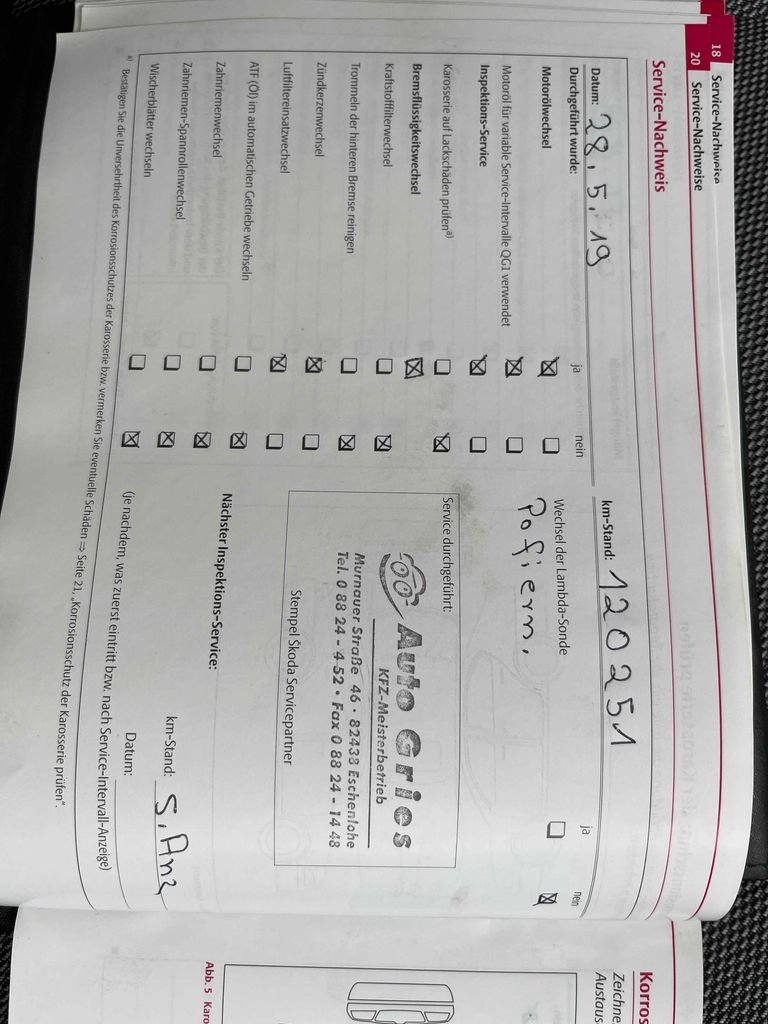 18 Service-Nachweise
20 Service-Nachweise
Service-Nachweis
Datum: 28.5.19 km-Stand: 120251
Durchgeführt wurde: ja nein ja nein
Motorölwechsel ☒ ☐ Wechsel der Lambda-Sonde ☐ ☒
Motoröl für variable Service-Intervalle QG1 verwendet ☒ ☐
Inspektions-Service ☒ ☐
Karosserie auf Lackschäden prüfen a) ☐ ☒
Bremsflüssigkeitswechsel ☒
Kraftstofffilterwechsel ☐ ☒
Trommeln der hinteren Bremse reinigen ☐ ☒
Zündkerzenwechsel ☒ ☐
Luftfiltereinsatzwechsel ☒ ☐
ATF (Öl) im automatischen Getriebe wechseln ☐ ☒
Zahnriemenwechsel ☐ ☒
Zahnriemen-Spannrollenwechsel ☐ ☒
Wischerblätter wechseln ☐ ☒
Service durchgeführt:
Auto Gries
KFZ-Meisterbetrieb
Murnauer Straße 46 · 82438 Eschenlohe
Tel. 0 88 24 - 4 52 · Fax 0 88 24 - 14 48
Stempel Škoda Servicepartner
Nächster Inspektions-Service:
km-Stand: S. Anz
Datum:
(je nachdem, was zuerst eintritt bzw. nach Service-Intervall-Anzeige)
a) Bestätigen Sie die Unversehrtheit des Korrosionsschutzes der Karosserie bzw. vermerken Sie eventuelle Schäden ⇒ Seite 21, „Korrosionsschutz der Karosserie prüfen“.
Korros
Zeichne
Austaus
Abb. 5 Karo